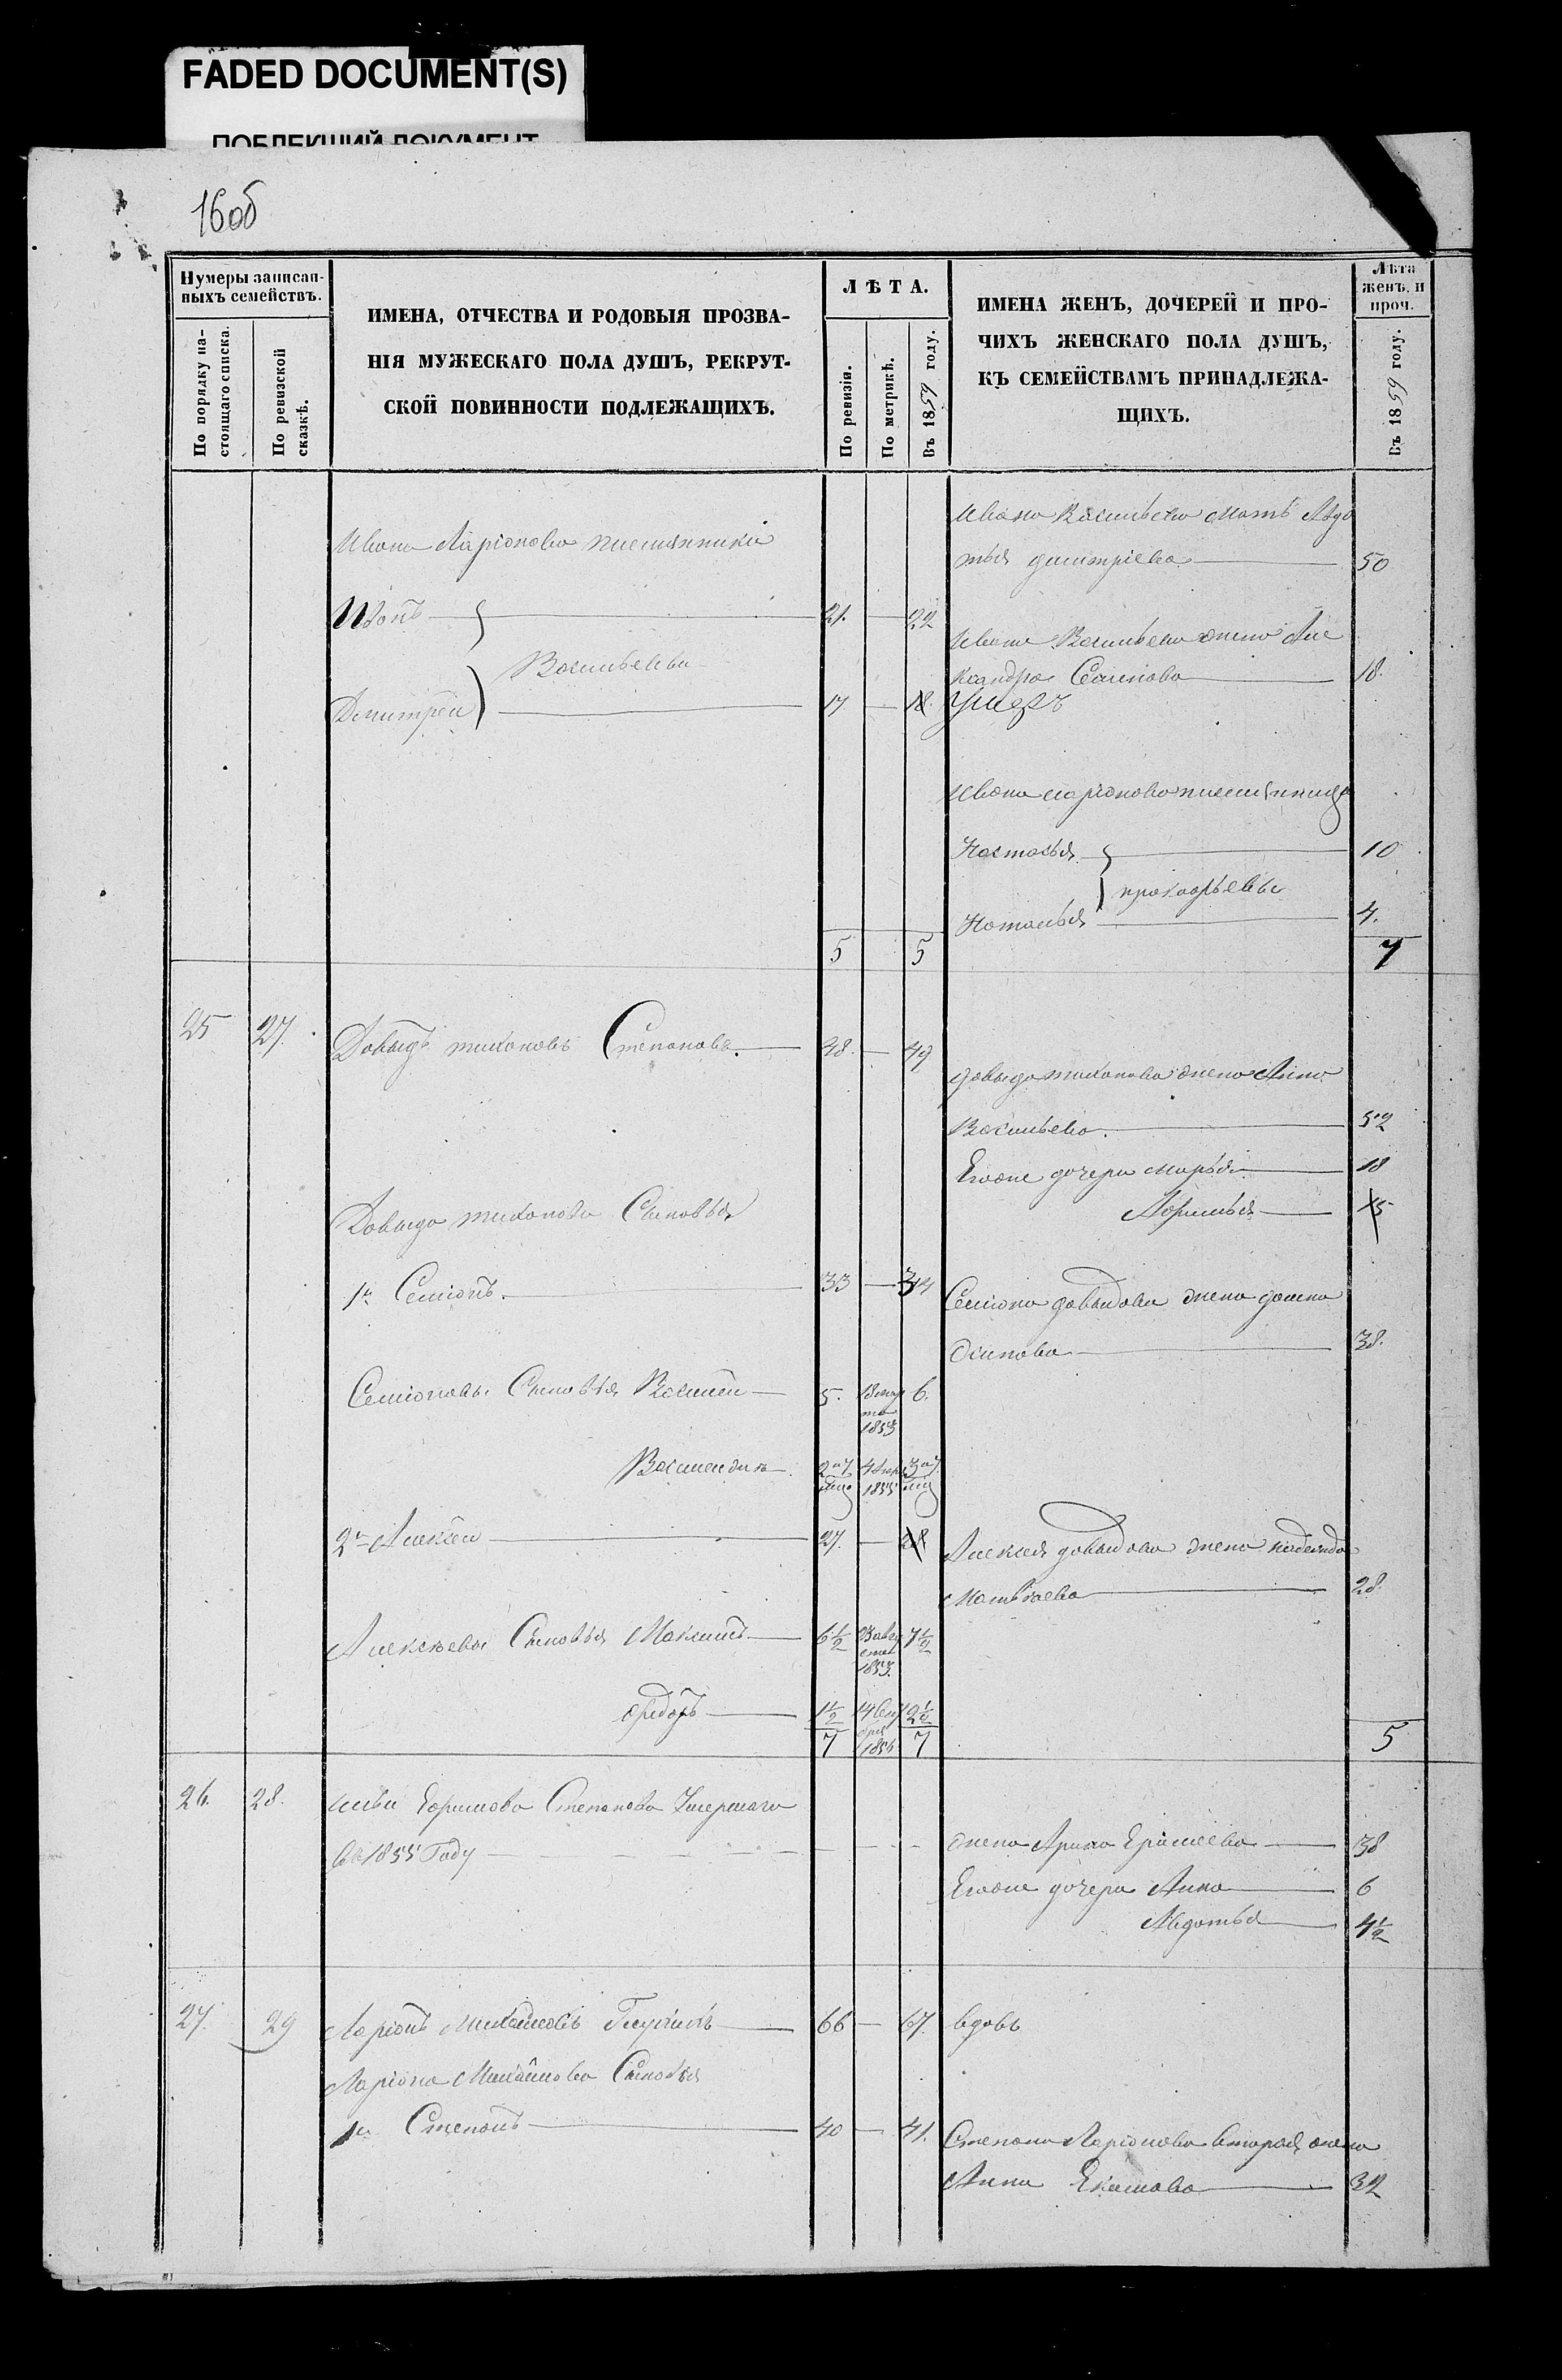 FADED DOCUMENT(S)
ПОБЛЕКШИЙ ДОКУМЕНТ
16об
Нумеры записан-
ныхъ семействъ.
По порядку на-
стоящаго списка.
По ревизской
сказкѣ.
ИМЕНА, ОТЧЕСТВА И РОДОВЫЯ ПРОЗВА-
НІЯ МУЖЕСКАГО ПОЛА ДУШЪ, РЕКРУТ-
СКОЙ ПОВИННОСТИ ПОДЛЕЖАЩИХЪ.
ЛѢТА.
По ревизіи.
По метрикѣ.
Въ 1859 году.
ИМЕНА ЖЕНЪ, ДОЧЕРЕЙ И ПРО-
ЧИХЪ ЖЕНСКАГО ПОЛА ДУШЪ,
КЪ СЕМЕЙСТВАМЪ ПРИНАДЛЕЖА-
ЩИХЪ.
Лѣта
женъ. и
проч.
Въ 1859 году.
Ивана Васильева мать Авдо
Ивана Ларіонова племянники
тья дмитріева 50
Иванъ 21. 22
Ивана Васильева жена Але
Васильевы
ксандра 18.
Дмитрей 17 18
Ивана ларіонова племянницы
Настасья 10
прокофьевы
Наталья 4.
5 5 7
25 27. Давыдъ тихоновъ Степановъ. 48. 49
давыда тихонова жена Анна
Васильева. 52
Егоже дочери марья 18
15
Давыда тихонова Сыновья
1й Семіонъ. 33 34
Семіона давыдова жена домна
Осипова 38.
Семіоновы Сыновья Василей 5. 6.
1853
1855
2й Алексей 27. 28
Алексея давыдова жена надежда
Матвѣева 28.
Алексѣевы Сыновья Максимъ 6½ 7½
1853.
Ѳедоръ 1½ 2½
7 7 5
26. 28. Ефимова Степанова Умершаго
въ 1855 Году
жена Арина 38
Егоже дочери Анна 6
Авдотья 4½
27. 29 Ларіонъ Михайловъ 66 67. вдовъ
Ларіона Михайлова Сыновья
1й Степанъ 40 41.
Степана Ларіонова вторая жена
Анна 32